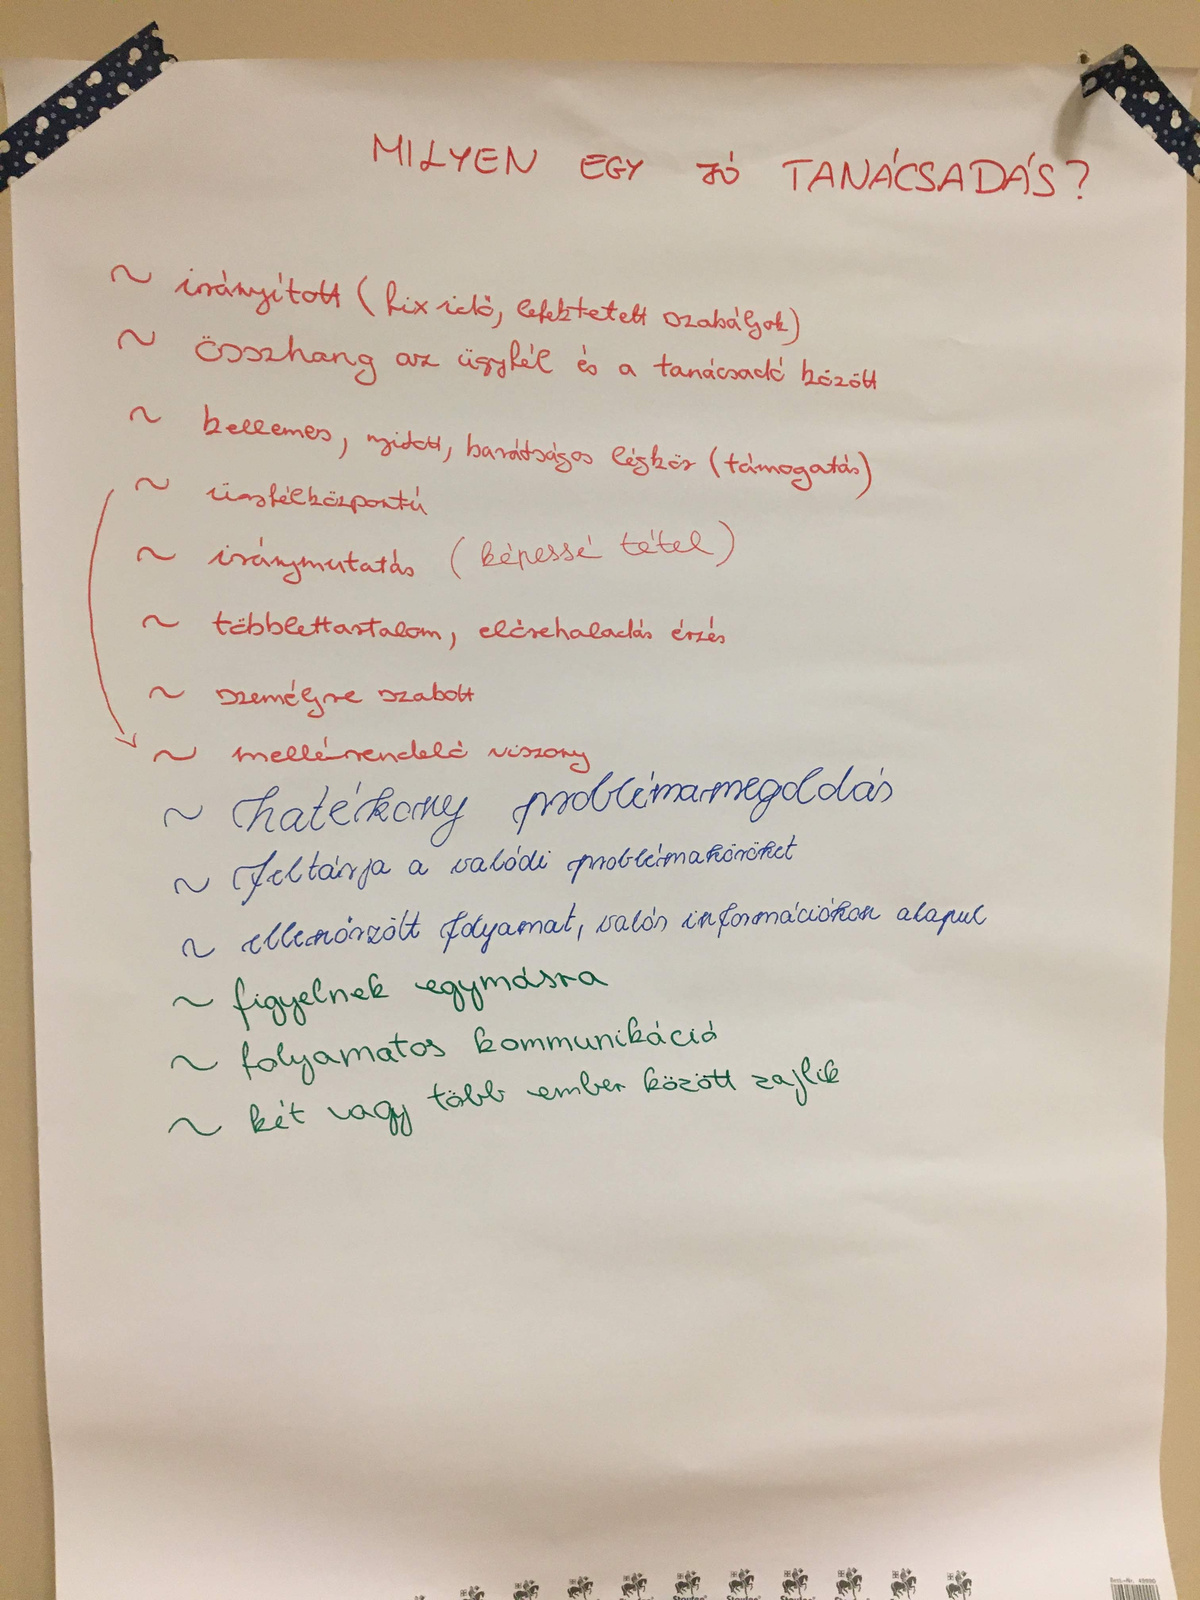 MILYEN EGY JÓ TANÁCSADÁS?
~ irányított (fix idő, lefektetett szabályok)
~ összhang az ügyfél és a tanácsadó között
~ kellemes, nyitott, barátságos légkör (támogatás)
~ ügyfélközpontú
~ iránymutatás (képessé tétel)
~ többlettartalom, előrehaladás érzés
~ személyre szabott
~ mellérendelő viszony
~ hatékony problémamegoldás
~ feltárja a valódi problémaköröket
~ ellenőrzött folyamat, valós információkon alapul
~ figyelnek egymásra
~ folyamatos kommunikáció
~ két vagy több ember között zajlik